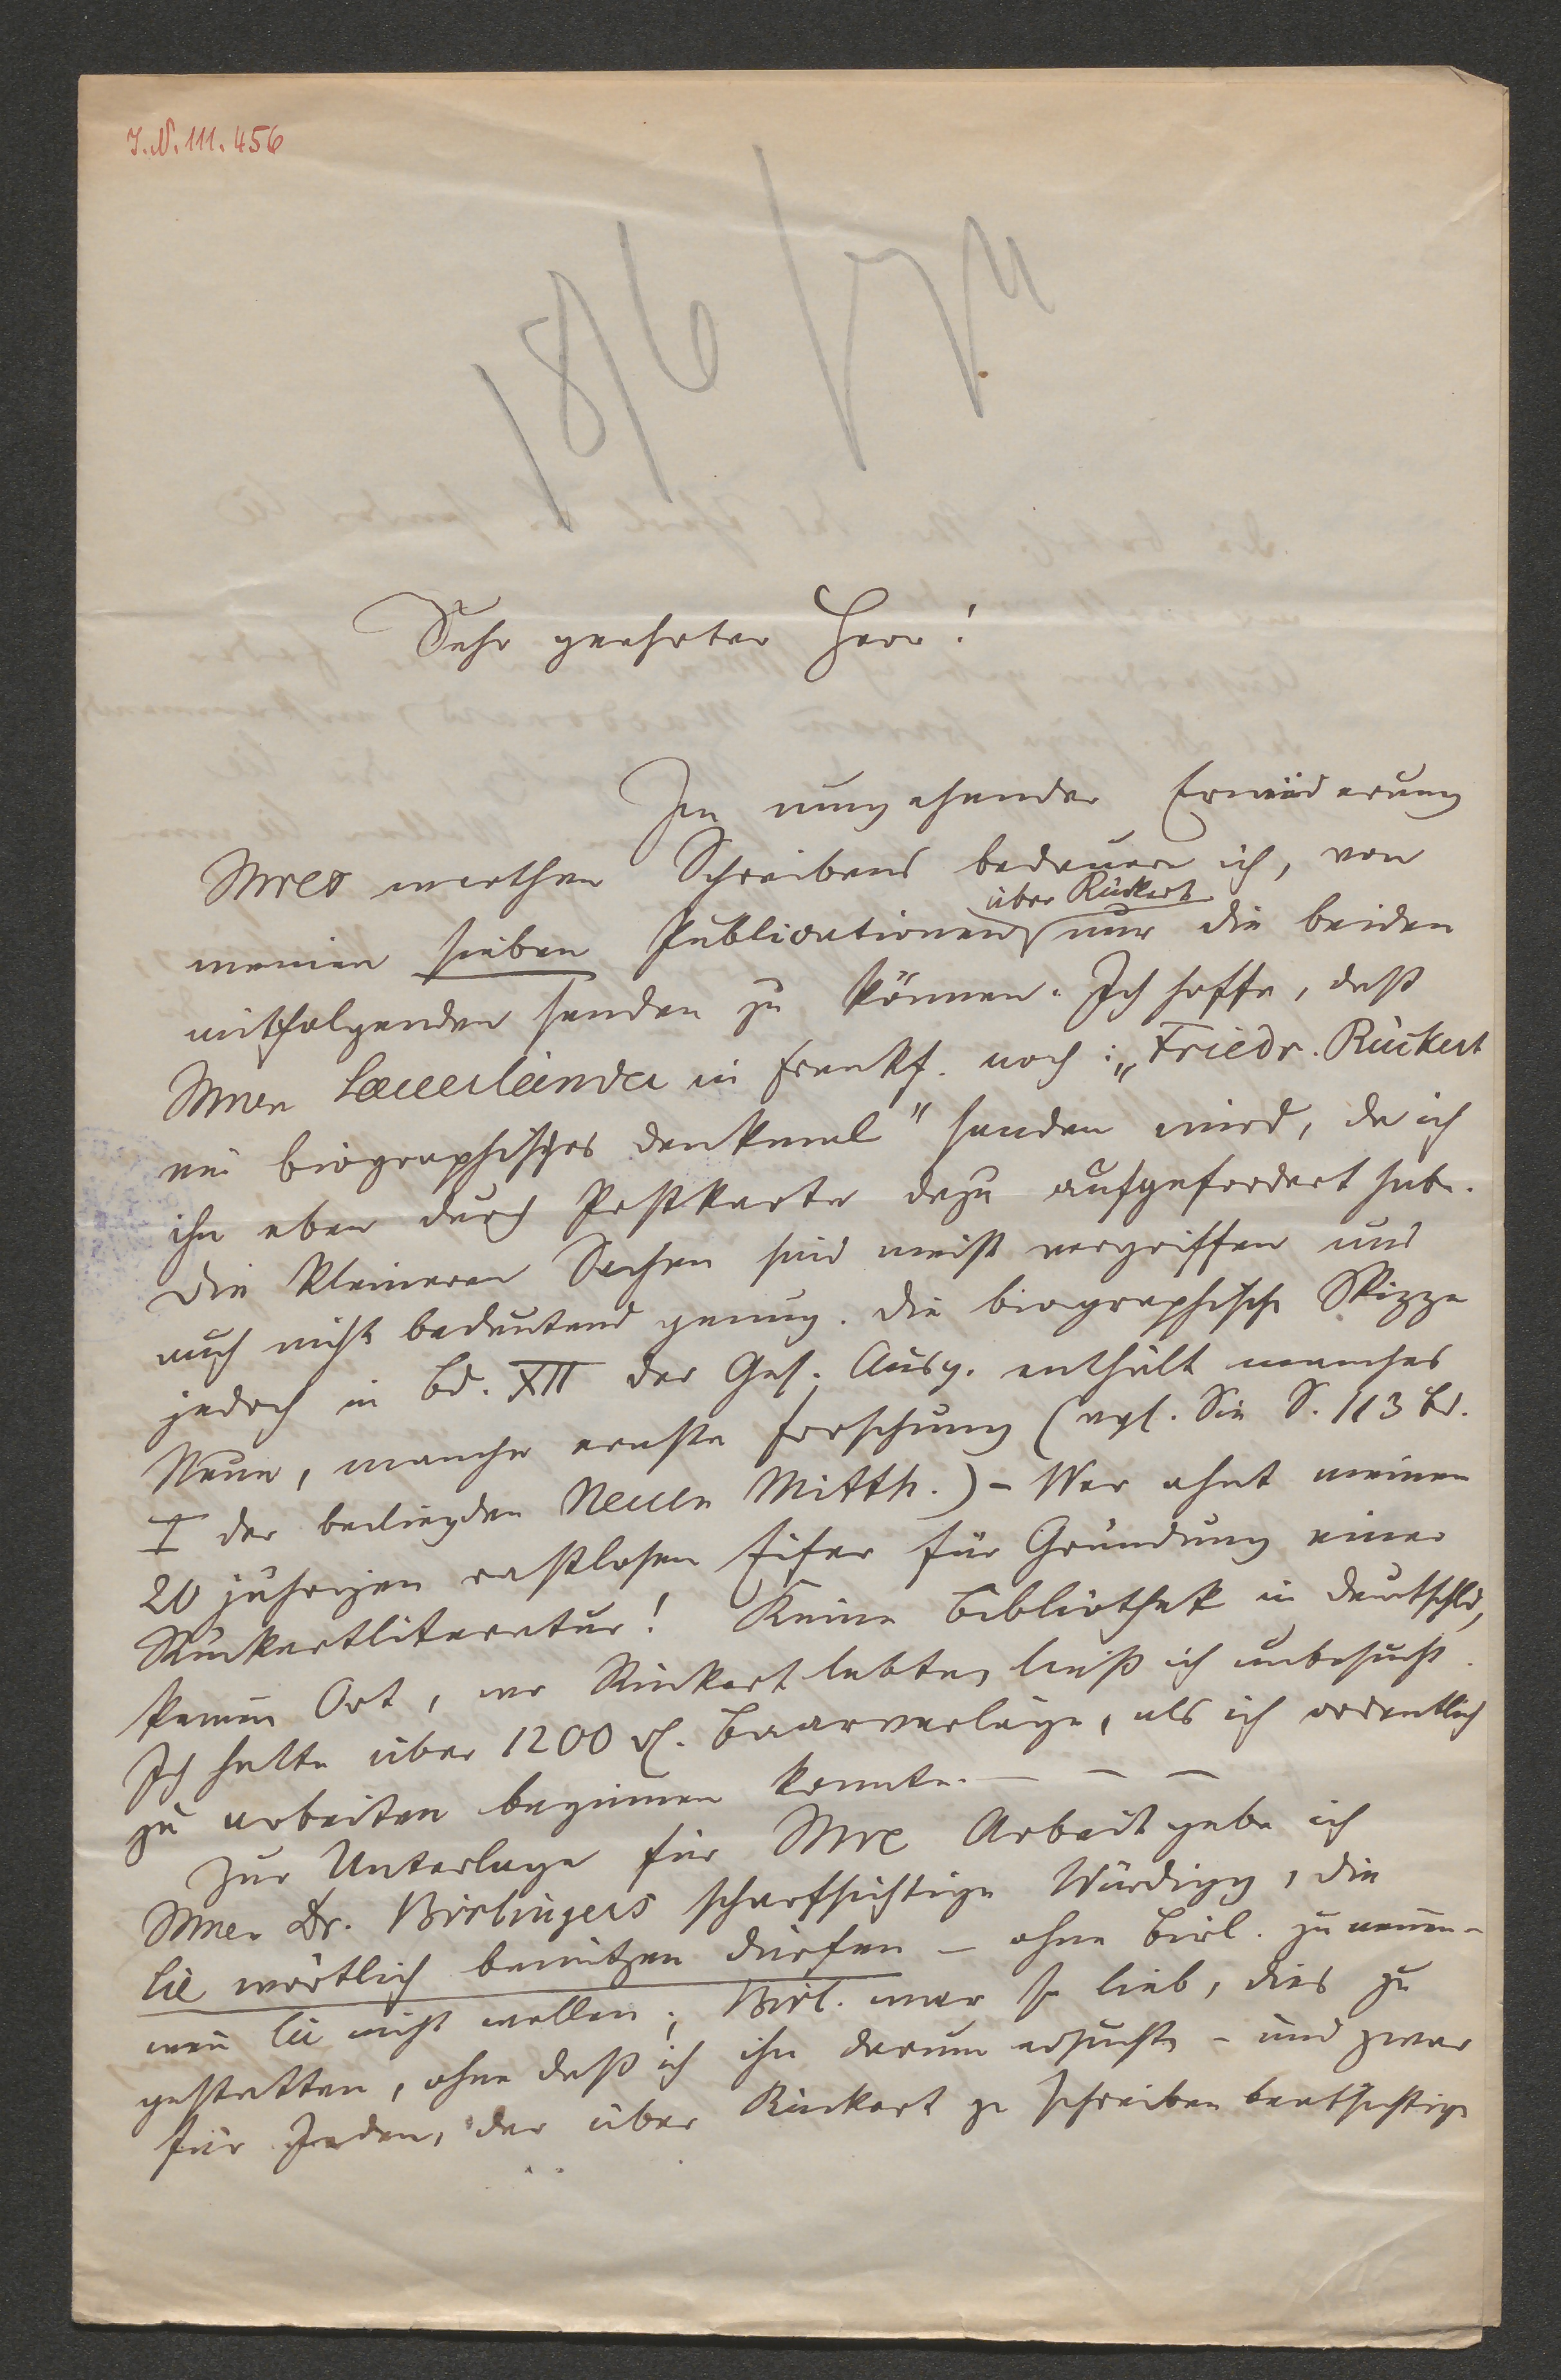 I.N. 111.456
18/6 74
Sehr geehrter Herr!
In umgehender Erwiederung
Ihres werthen Schreibens bedauere ich, von
meinen sieben Publicationen über Rückert nur die beiden
mitfolgenden senden zu können. Ich hoffe, daß
Ihnen Sauerländer in Frankf. noch: „Friedr. Rückert
ein biographisches Denkmal" senden wird, da ich
ihn eben durch Postkarte dazu aufgefordert habe.
Die kleineren Sachen sind meist vergriffen und
auch nicht bedeutend genug. Die biographische Skizze
jedoch in Bd. XII der Ges. Ausg. enthält manches
Neue, manche ernste Forschung (vgl. Sie S. 113 Bd.
I der beiliegden Neuen Mitth.) - Wer ahnt meinen
20 jährigen rastlosen Eifer für Gründung einer
Rückertliteratur! Keine Bibliothek in Deutschld,
keinen Ort, wo Rückert lebte, ließ ich unbesucht.
Ich hatte über 1200 fl. Baarverläge, als ich ordentlich
zu arbeiten beginnen konnte. — — —
Zur Unterlage für Ihre Arbeit gebe ich
Ihnen Dr. Birlingers scharfsichtige Würdigg, die
Sie wörtlich benützen dürfen — ohne Birl. zu nennen -
wenn Sie nicht wollen; Birl. war so lieb, dies zu
gestatten, ohne daß ich ihn darum ersuchte - und zwar
für Jeden, der über Rückert zu schreiben beabsichtige